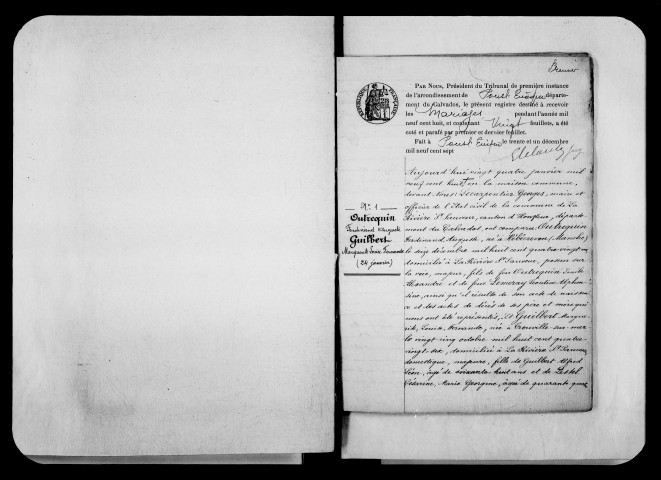 Premier
RÉPUBLIQUE FRANÇAISE
PAR NOUS, Président du Tribunal de première instance
de l'arrondissement de Pont-Evêque départe-
ment du Calvados, le présent registre destiné à recevoir
les Mariages pendant l'année mil
neuf cent huit, et contenant Vingt feuillets, a été
coté et parafé par premier et dernier feuillet.
Fait à Pont-Evêque le trente et un décembre
mil neuf cent sept
N° 1
Outrequin
Ferdinand Auguste
Guilbert
Marguerite Louise Fernande
(24 janvier)
Aujourd'hui vingt quatre janvier mil
neuf cent huit en la maison commune,
devant Nous Lecarpentier Georges, maire et
officier de l'Etat civil de la commune de La
Rivière St Sauveur, canton d'Honfleur, départe-
ment du Calvados, ont comparu Outrequin
Ferdinand Auguste, né à (Manche)
le seize décembre mil huit cent quatre vingt
domicilié à La Rivière St Sauveur, poseur sur
la voie, majeur, fils de feu Outrequin
Alexandre et de feue Lemeray Léontine Alphon-
sine, ainsi qu'il résulte de son acte de naissan-
ce et des actes de décès de ses père et mère qui
nous ont été représentés, Et Guilbert Margue-
rite, Louise, Fernande, née à Trouville-sur-mer
le vingt cinq octobre mil huit cent quatre-
vingt-six, domiciliée à La Rivière St Sauveur
domestique, majeure, fille de Guilbert Alfred
Léon, âgé de soixante huit ans et de
Marie Georgine, âgée de quarante